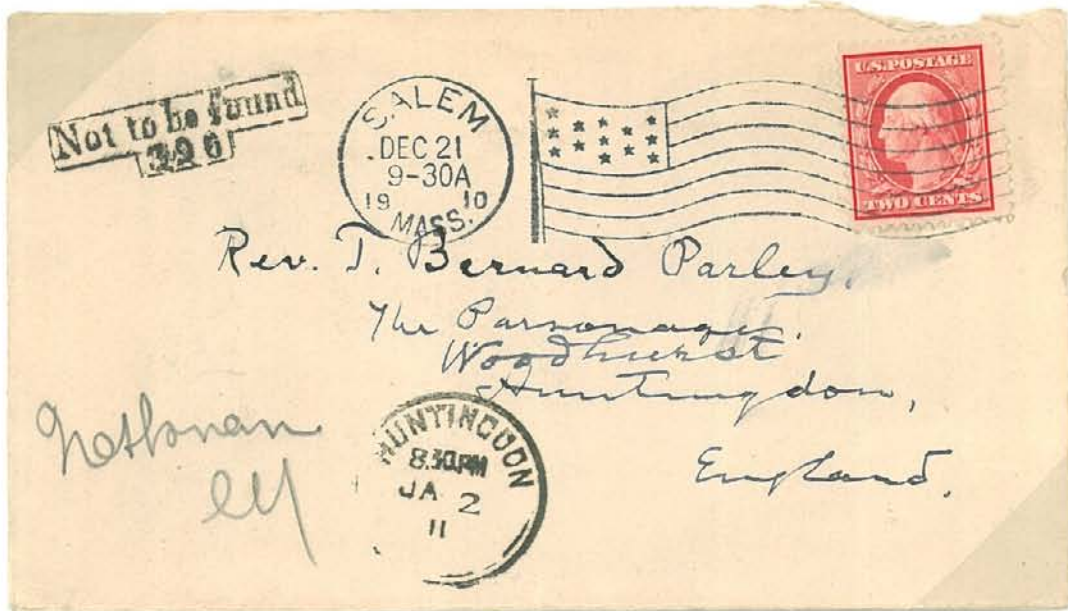 Not to be found
396
SALEM
DEC 21
9-30A
19 10
MASS.
U.S. POSTAGE
TWO CENTS
Rev. T. Bernard Parley,
The Parsonage.
Woodhurst
Huntingdon,
England.
HUNTINGDON
8.30PM
JA 2
11